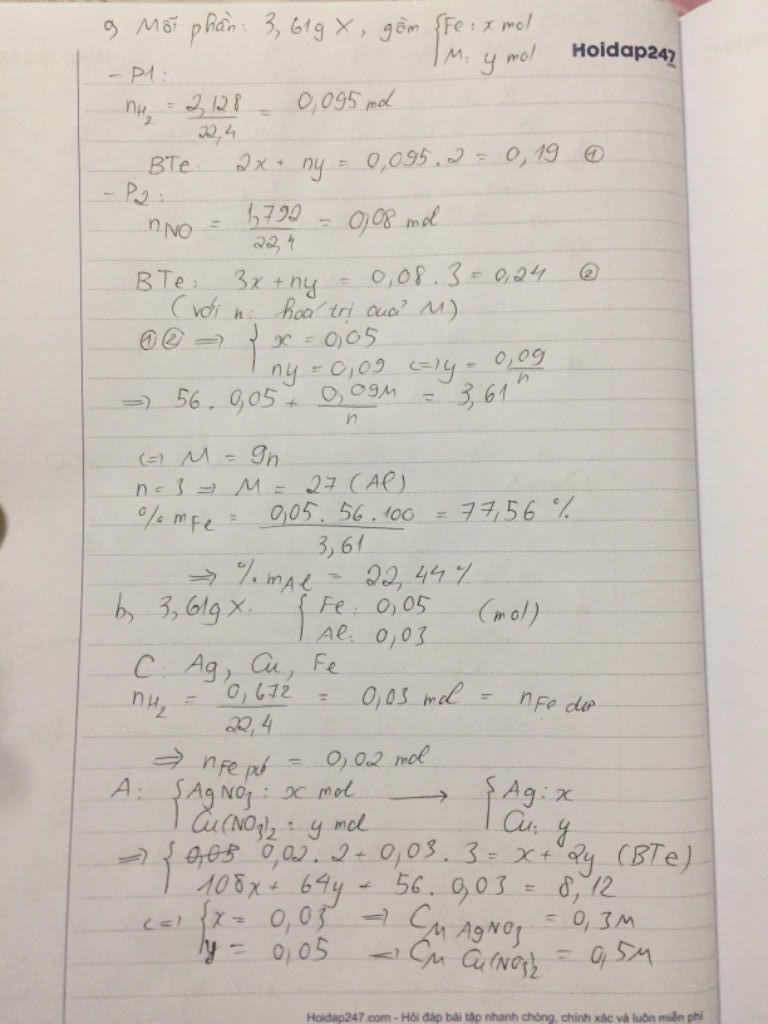 a, Mỗi phần: 3,61g X, gồm { Fe: x mol
M: y mol
Hoidap247
- P1:
nH2 = 2,128 / 22,4 = 0,095 mol
BTe: 2x + ny = 0,095.2 = 0,19 ①
- P2:
nNO = 1,792 / 22,4 = 0,08 mol
BTe: 3x + ny = 0,08.3 = 0,24 ②
(với n: hoá trị của M)
①② => { x = 0,05
ny = 0,09 <=> y = 0,09 / n
=> 56.0,05 + 0,09M / n = 3,61
<=> M = 9n
n = 3 => M = 27 (Al)
% mFe = 0,05.56.100 / 3,61 = 77,56 %
=> % mAl = 22,44 %
b, 3,61g X. { Fe: 0,05 (mol)
Al: 0,03
C: Ag, Cu, Fe
nH2 = 0,672 / 22,4 = 0,03 mol = nFe dư
=> nFe pứ = 0,02 mol
A: { AgNO3: x mol ⟶ { Ag: x
Cu(NO3)2: y mol Cu: y
=> { 0,02.2 + 0,03.3 = x + 2y (BTe)
108x + 64y + 56.0,03 = 8,12
<=> { x = 0,03 => CM AgNO3 = 0,3M
y = 0,05 => CM Cu(NO3)2 = 0,5M
Hoidap247.com - Hỏi đáp bài tập nhanh chóng, chính xác và luôn miễn phí